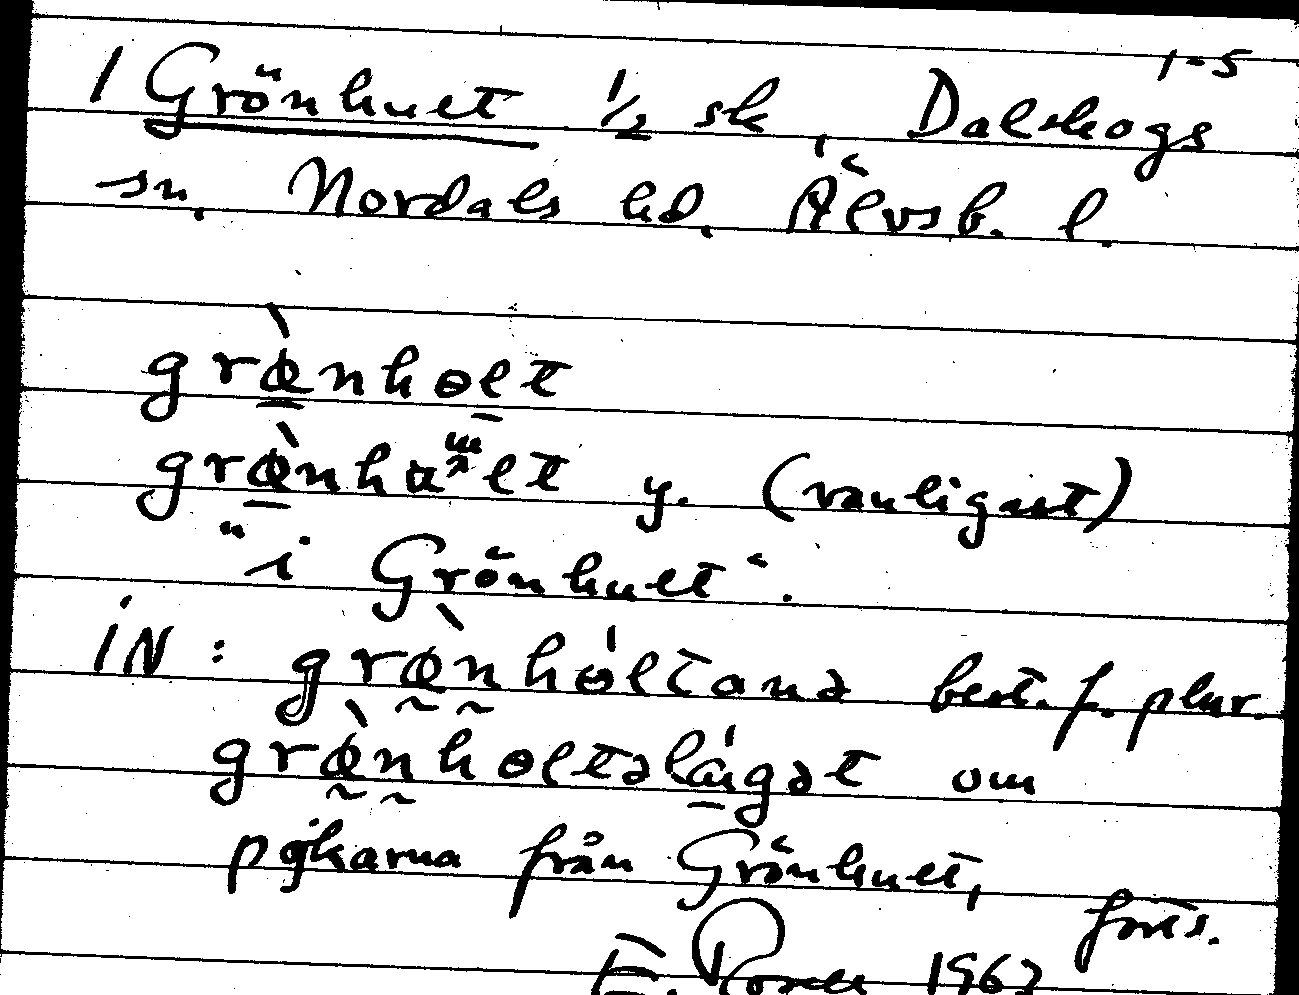 1-5
1 Grönhuet 1/2 sk, Dalskogs
sn. Nordals hd. Älvsb. l.
grœ̀nhɵlt
grœ̀nhult y. (vanligast)
"i Grönhuet".
iN: grœ̀nhɵ́ltana best. f. plur.
grœ̀nhɵltəlä́gət om
pojkarna från Grönhuet,
forts.
E. 1963